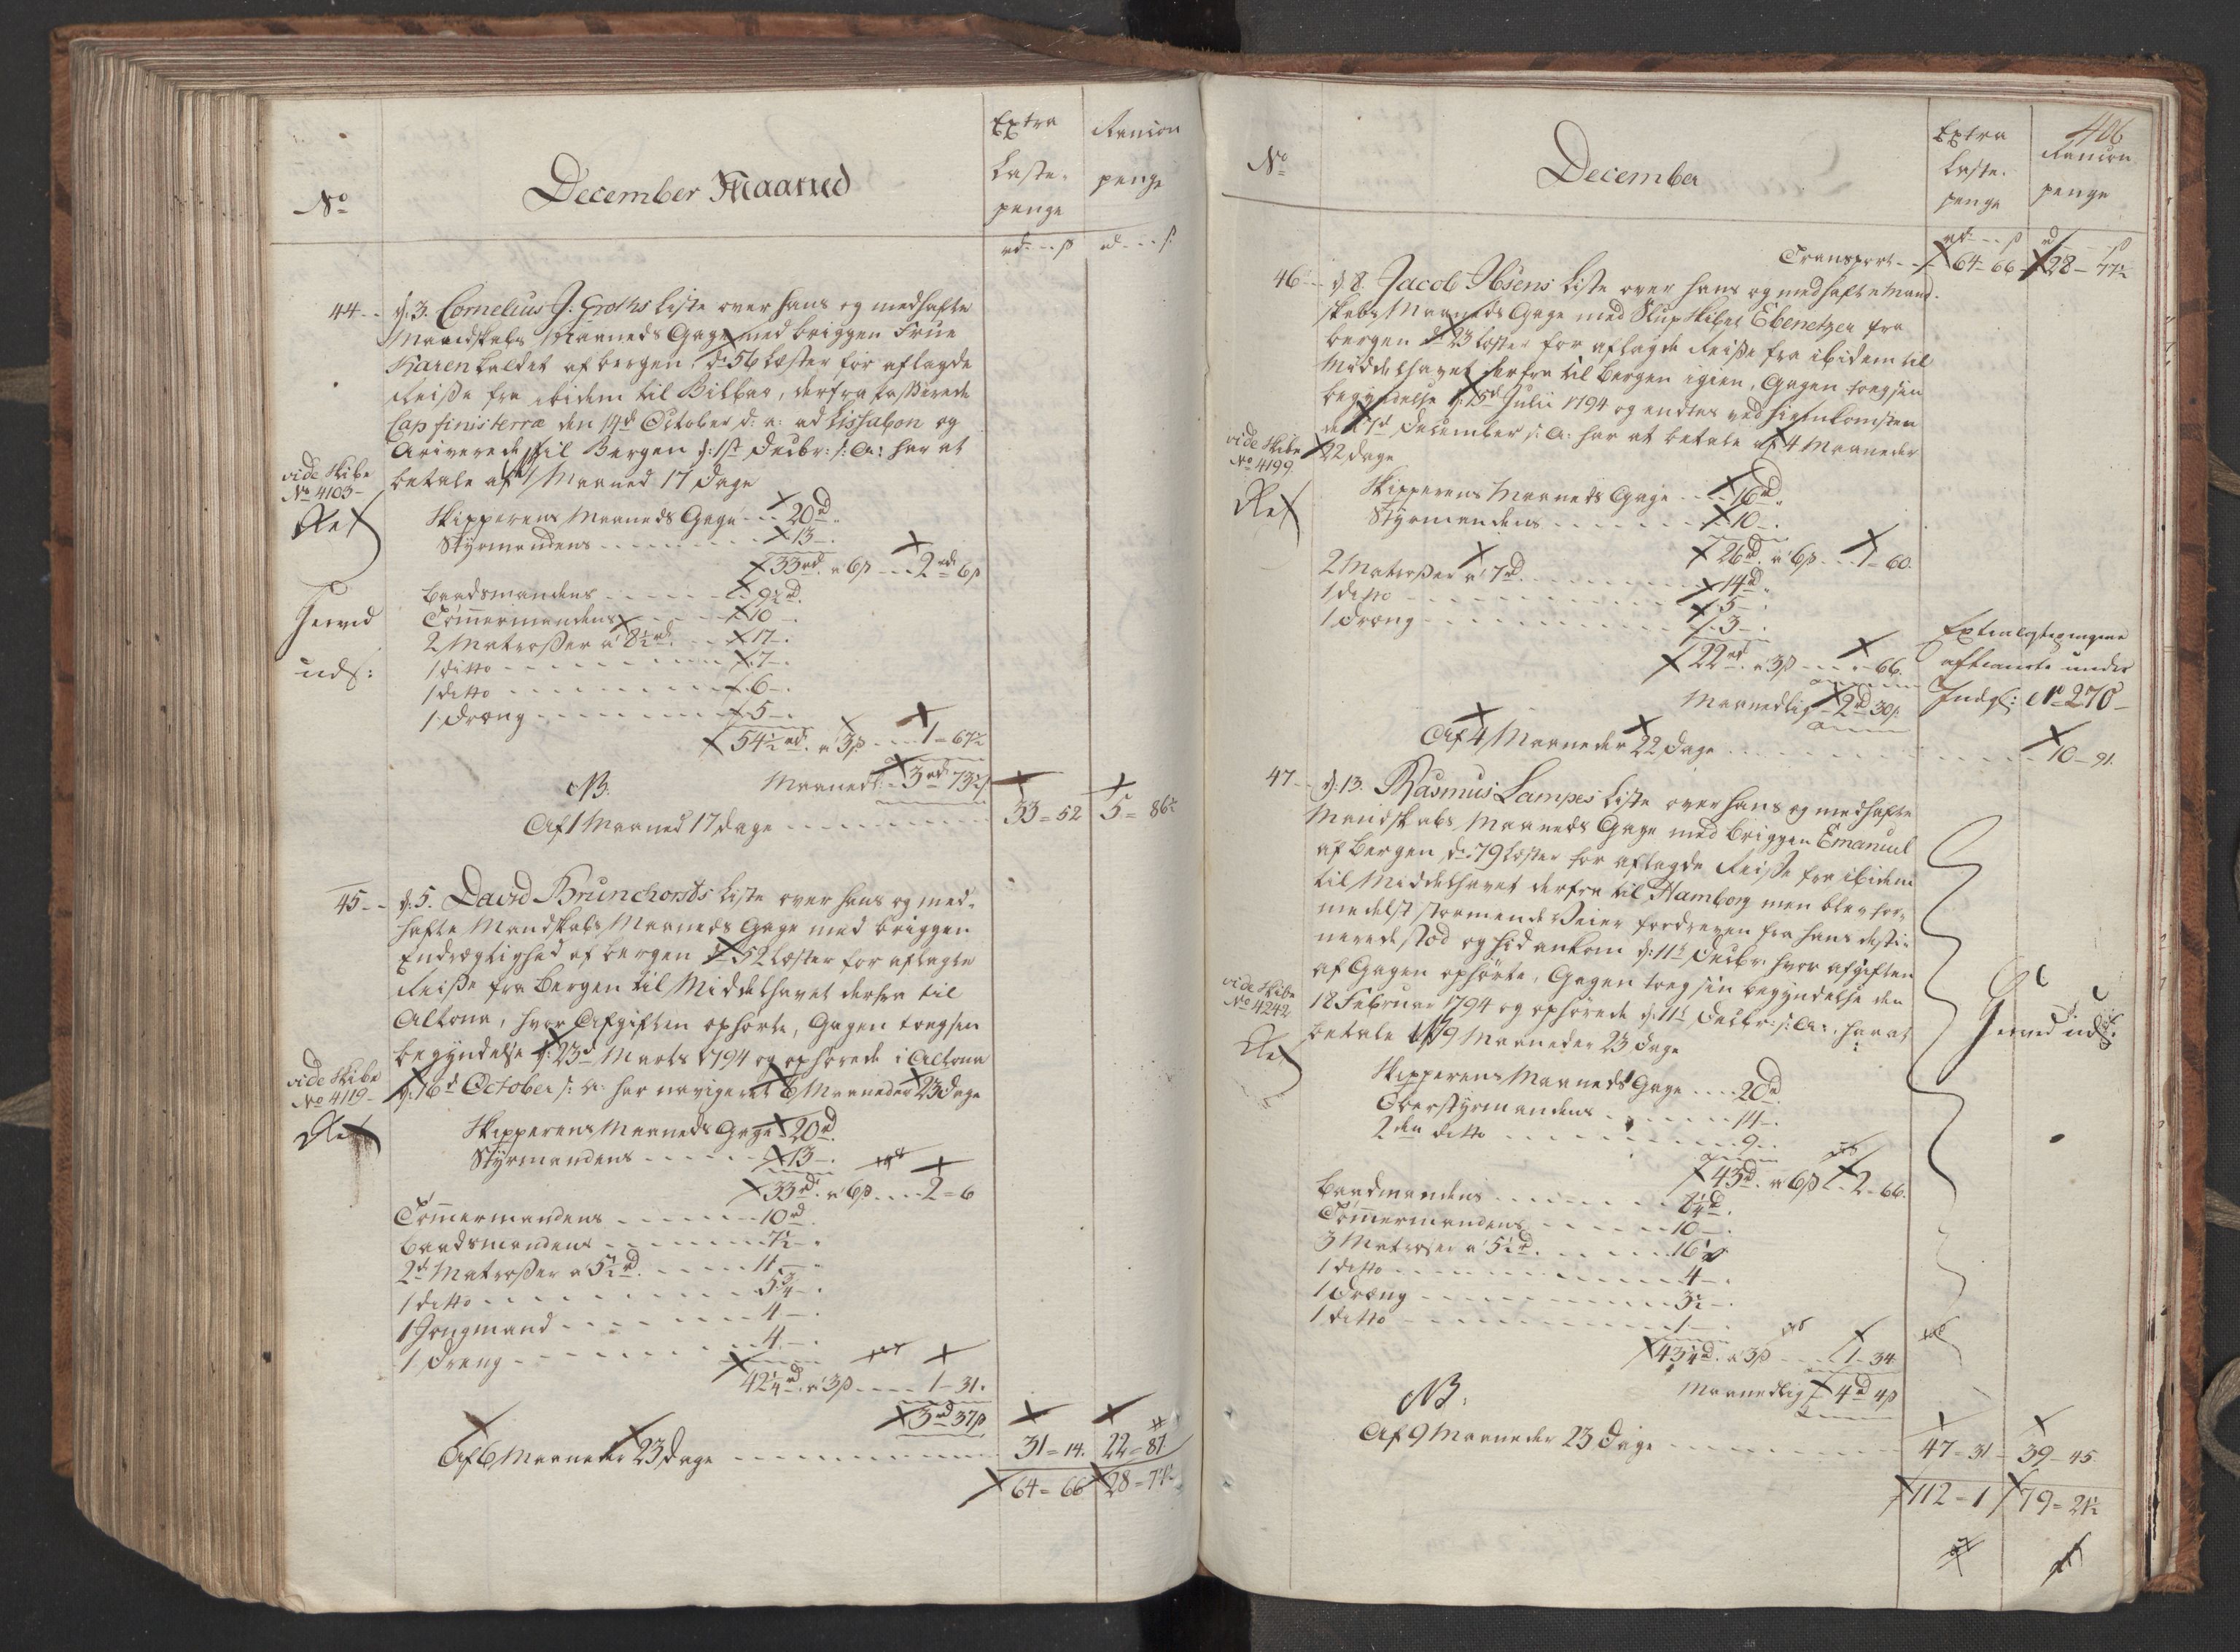 Extra
Laste-
penge
Rancion
penge
No
December Maaned
rd: - - ß
rd - - ß
44 - - d: 3. Cornelius J: Groths Liste over hans og medhafte
Mandskabs Maaneds Gage med briggen Frue
Karen kaldet af bergen, dr. 56 Læster for aflagde
Reiße fra ibidem til Bilbao, derfra paßerede
Cap finisterræ den 14d October d: a: ad Lissabon og
Ariverede til Bergen d: 1st Decbr: s: a: har at
betale af 1 Maaned 17 dage
vide Skibs
No 4103 -
Ret
Skipperens Maaneds Gage - - 20rd
Styrmandens - - - - - - 13 -
33rd. a 6ß - - 2rd 6ß
Baadsmandens - - - - 9½rd.
Tömmermandens - - 10 -
2 Matroßer a 8½rd. - - 17 -
1 ditto - - - - - - - 7 -
1 ditto - - - - - - - 6 -
1 dreng - - - - - - - 5 -
54½rd. a 3ß - - - 1 = 67½
NB.
Maanedl: - 3rd 73½ß
Af 1 Maaned 17 dage - - - - - - - - 33 = 52 5 = 86½
45 - - d: 5. David Brunchorsts Liste over hans og med-
hafte Mandskabs Maaneds Gage med briggen
Endrægtighed af bergen dr. 52 Læster for aflagte
Reiße fra Bergen til Middelhavet derfra til
Altona, hvor Afgiften ophörte, Gagen toeg sin
begyndelse d: 23d Marts 1794 og ophörede i Altona
d: 16d October s: a: har navigeret 6 Maaneder 23 dage
vide Skibs
No 4119 -
Ret
Skipperens Maaneds Gage 20rd.
Styrmandens - - - - - 13 -
33rd. a 6ß - - - 2 = 6
Tömmermandens - - - - - 10rd.
Baadsmandens - - - - - 7½ -
2d Matroßer a 5½rd. - - - - 11 -
1 ditto - - - - - - - - 5¾ -
1 Jongmand - - - - - - 4 -
1 dreng - - - - - - - 4 -
42¼rd. a 3ß - - - - 1 - 31.
3rd 37ß
Af 6 Maaneder 23 dage - - - - - - - - 31 = 14. 22 = 87
64 = 66 28 = 77½
406
No
December
Extra
Laste.
penge
Rancion
penge
rd: - - ß
rd - - ß
Transport - - 64 - 66 28 - 77½
46 - - d 8. Jacob Ibsens Liste over hans og medhafte Mand-
skabs Maaneds Gage med Slup Skibet Ebenetzer fra
bergen dr. 23 Læster for aflagde Reiße fra ibidem til
Middelhavet derfra til bergen igien, Gagen toeg sin
begyndelse d: 15d Julii 1794 og endtes ved hiemkomsten
den 7d December s: a: har at betale af 4 Maaneder
22 dage
vide Skibs
No 4199.
Ret
Skipperens Maaneds Gage - - - 16rd.
Styrmandens - - - - - - 10 -
26rd. a 6ß - - 1 - 60.
2 Matroßer a 7rd. - - - - - - 14rd.
1 ditto - - - - - - - - - 5 -
1 dreng - - - - - - - - - 3 -
22rd. a 3ß - - - - 66.
Maanedlig - 2rd 30ß
Indgl: No 270 -
Af 4 Maaneder 22 dage - - - - - - - - - - 10 - 91.
47 - d: 13. Rasmus Lampes Liste over hans og medhafte
Mandskabs Maaneds Gage med briggen Emanuel
af bergen dr. 79 Læster for aflagde Reiße fra ibidem
til Middelhavet derfra til Hamborg men blev for-
medelst stormende Veier fordreven fra hans desti-
nerede stæd og hid ankom d: 11t Decbr. hvor afgiften
af Gagen ophörte, Gagen toeg sin begyndelse den
18 Februar 1794 og ophörede d: 11t Decbr: s: a: har at
betale af 9 Maaneder 23 dage
vide Skibs
No 4242
Ret
Skipperens Maaneds Gage - - - - 20rd
Overstyrmandens - - - - - - 14 -
2den ditto - - - - - - - - 9 -
43rd. a 6ß - 2 - 66.
Baadmandens - - - - - - 8¼rd.
Tömmermandens - - - - - 10 -
3 Matroser a 5½rd. - - - - 16½
1 ditto - - - - - - - - 4 -
1 dreng - - - - - - - - 3½ -
1 ditto - - - - - - - - 1 -
43¼rd. a 3ß - - - 1 - 34
NB:
Maanedlig - 4rd 4ß
Af 9 Maaneder 23 dage - - - - - - - - 47 - 31 - 39 - 45.
112 - 1 79 = 21½